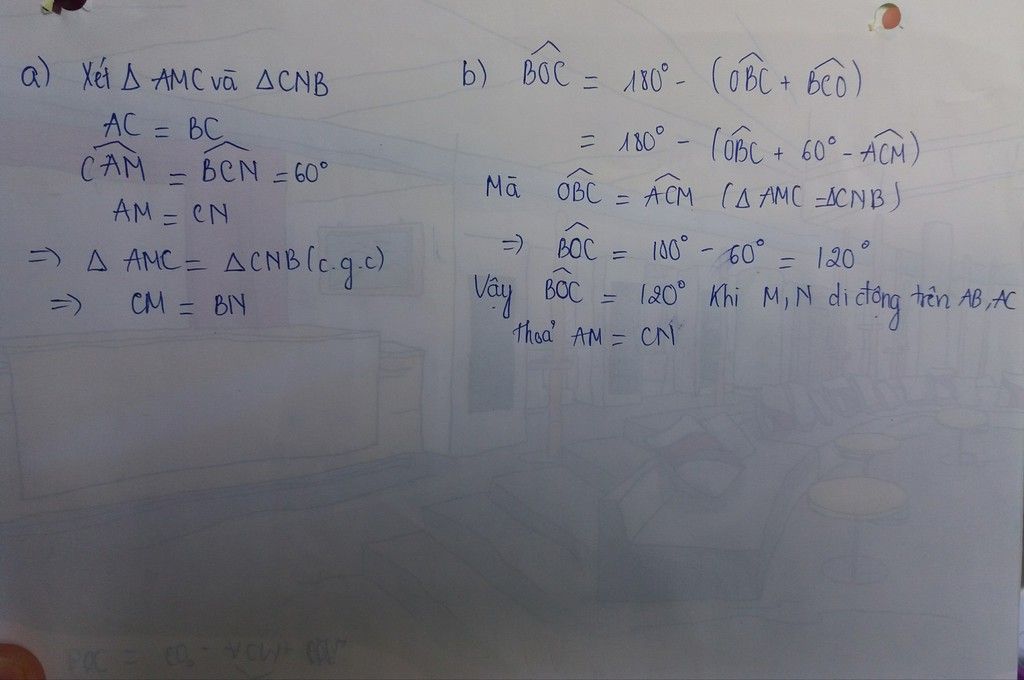 a) Xét Δ AMC và ΔCNB
AC = BC
\widehat{CAM} = \widehat{BCN} = 60°
AM = CN
=> Δ AMC = ΔCNB (c.g.c)
=> CM = BN
b) \widehat{BOC} = 180° - (\widehat{OBC} + \widehat{BCO})
= 180° - (\widehat{OBC} + 60° - \widehat{ACM})
Mà \widehat{OBC} = \widehat{ACM} (Δ AMC = ΔCNB)
=> \widehat{BOC} = 180° - 60° = 120°
Vậy \widehat{BOC} = 120° khi M, N di động trên AB, AC
thoả AM = CN